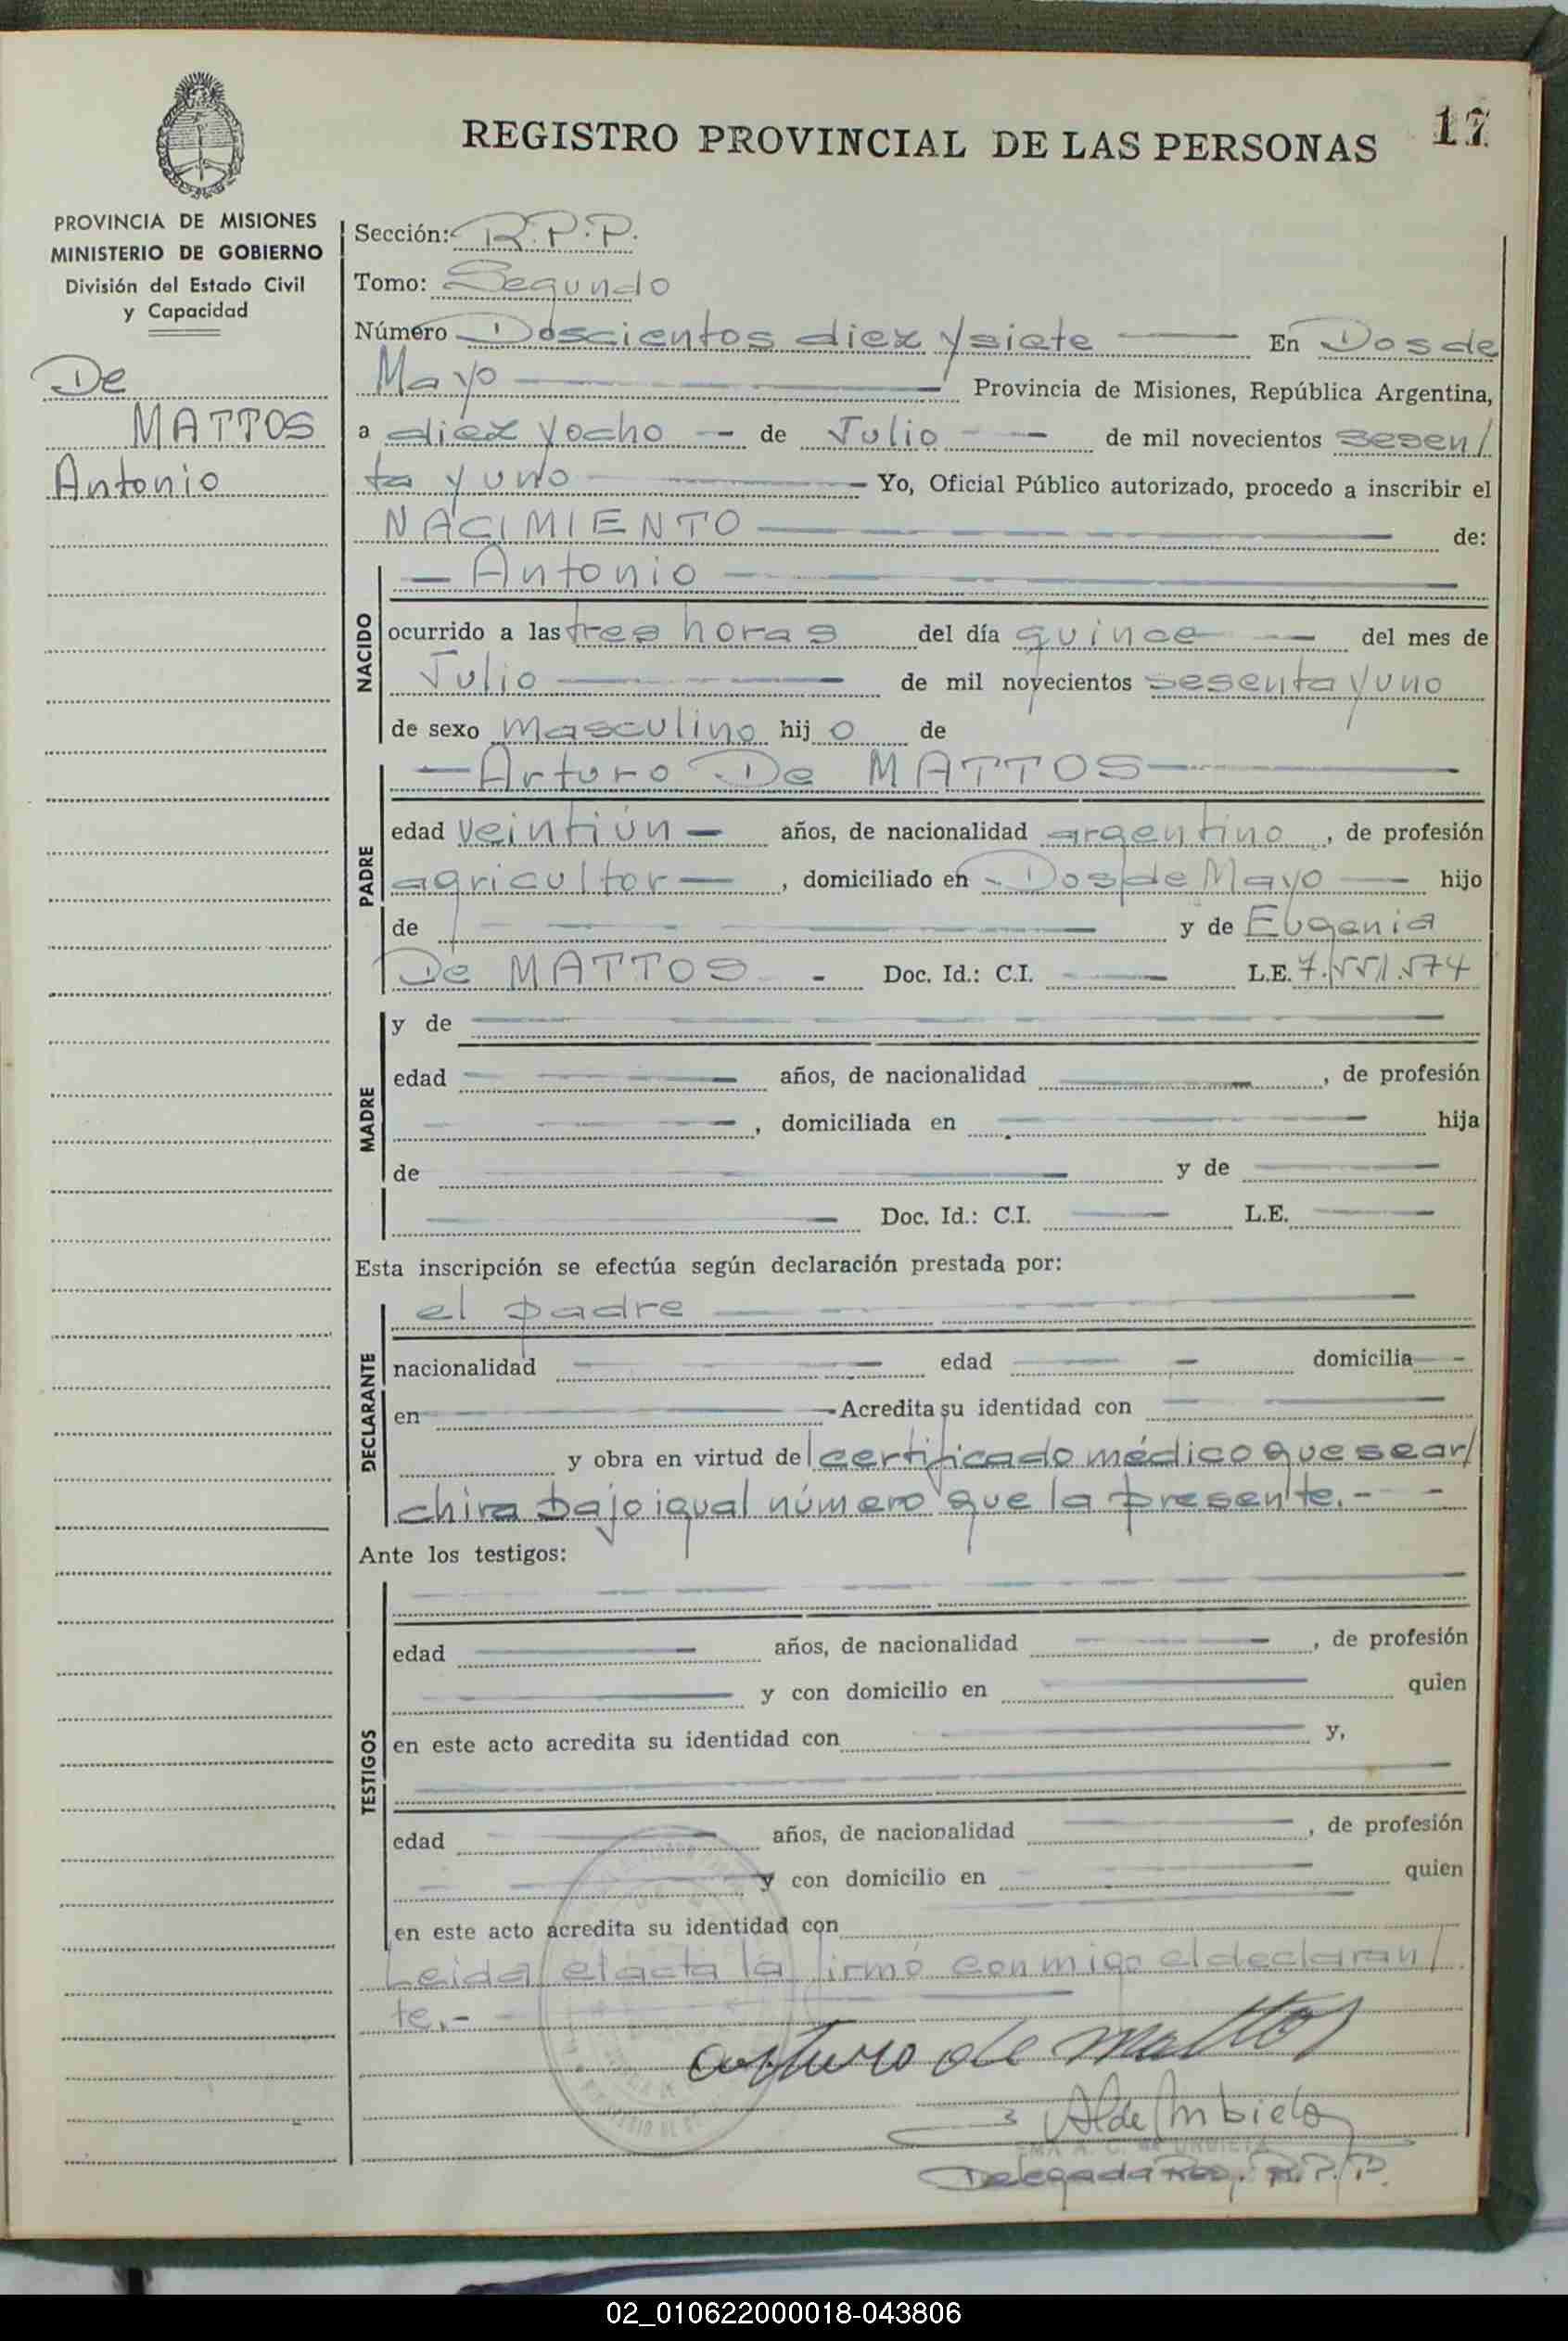 REGISTRO PROVINCIAL DE LAS PERSONAS 17
PROVINCIA DE MISIONES
MINISTERIO DE GOBIERNO
División del Estado Civil
y Capacidad
De
MATTOS
Antonio
Sección: R.P.P.
Tomo: Segundo
Número Doscientos diez y siete En Dos de
Mayo Provincia de Misiones, República Argentina,
a diez y ocho de Julio de mil novecientos sesen/
ta y uno Yo, Oficial Público autorizado, procedo a inscribir el
NACIMIENTO de:
NACIDO
Antonio
ocurrido a las tres horas del día quince del mes de
Julio de mil novecientos sesenta y uno
de sexo masculino hij o de
PADRE
Arturo De MATTOS
edad veintiún años, de nacionalidad argentino, de profesión
agricultor, domiciliado en Dos de Mayo hijo
de y de Eugenia
De MATTOS Doc. Id.: C.I. L.E. 7.551.574
MADRE
y de
edad años, de nacionalidad , de profesión
, domiciliada en hija
de y de
Doc. Id.: C.I. L.E.
Esta inscripción se efectúa según declaración prestada por:
DECLARANTE
el padre
nacionalidad edad domicilia
en Acredita su identidad con
y obra en virtud del certificado médico que se ar/
chiva bajo igual número que la presente.-
Ante los testigos:
TESTIGOS
edad años, de nacionalidad , de profesión
y con domicilio en quien
en este acto acredita su identidad con y,
edad años, de nacionalidad , de profesión
y con domicilio en quien
en este acto acredita su identidad con
Leida el acta la firmó conmigo el declaran/
te.-
arturo de mattos
Delegada R.P.P.
02_010622000018-043806